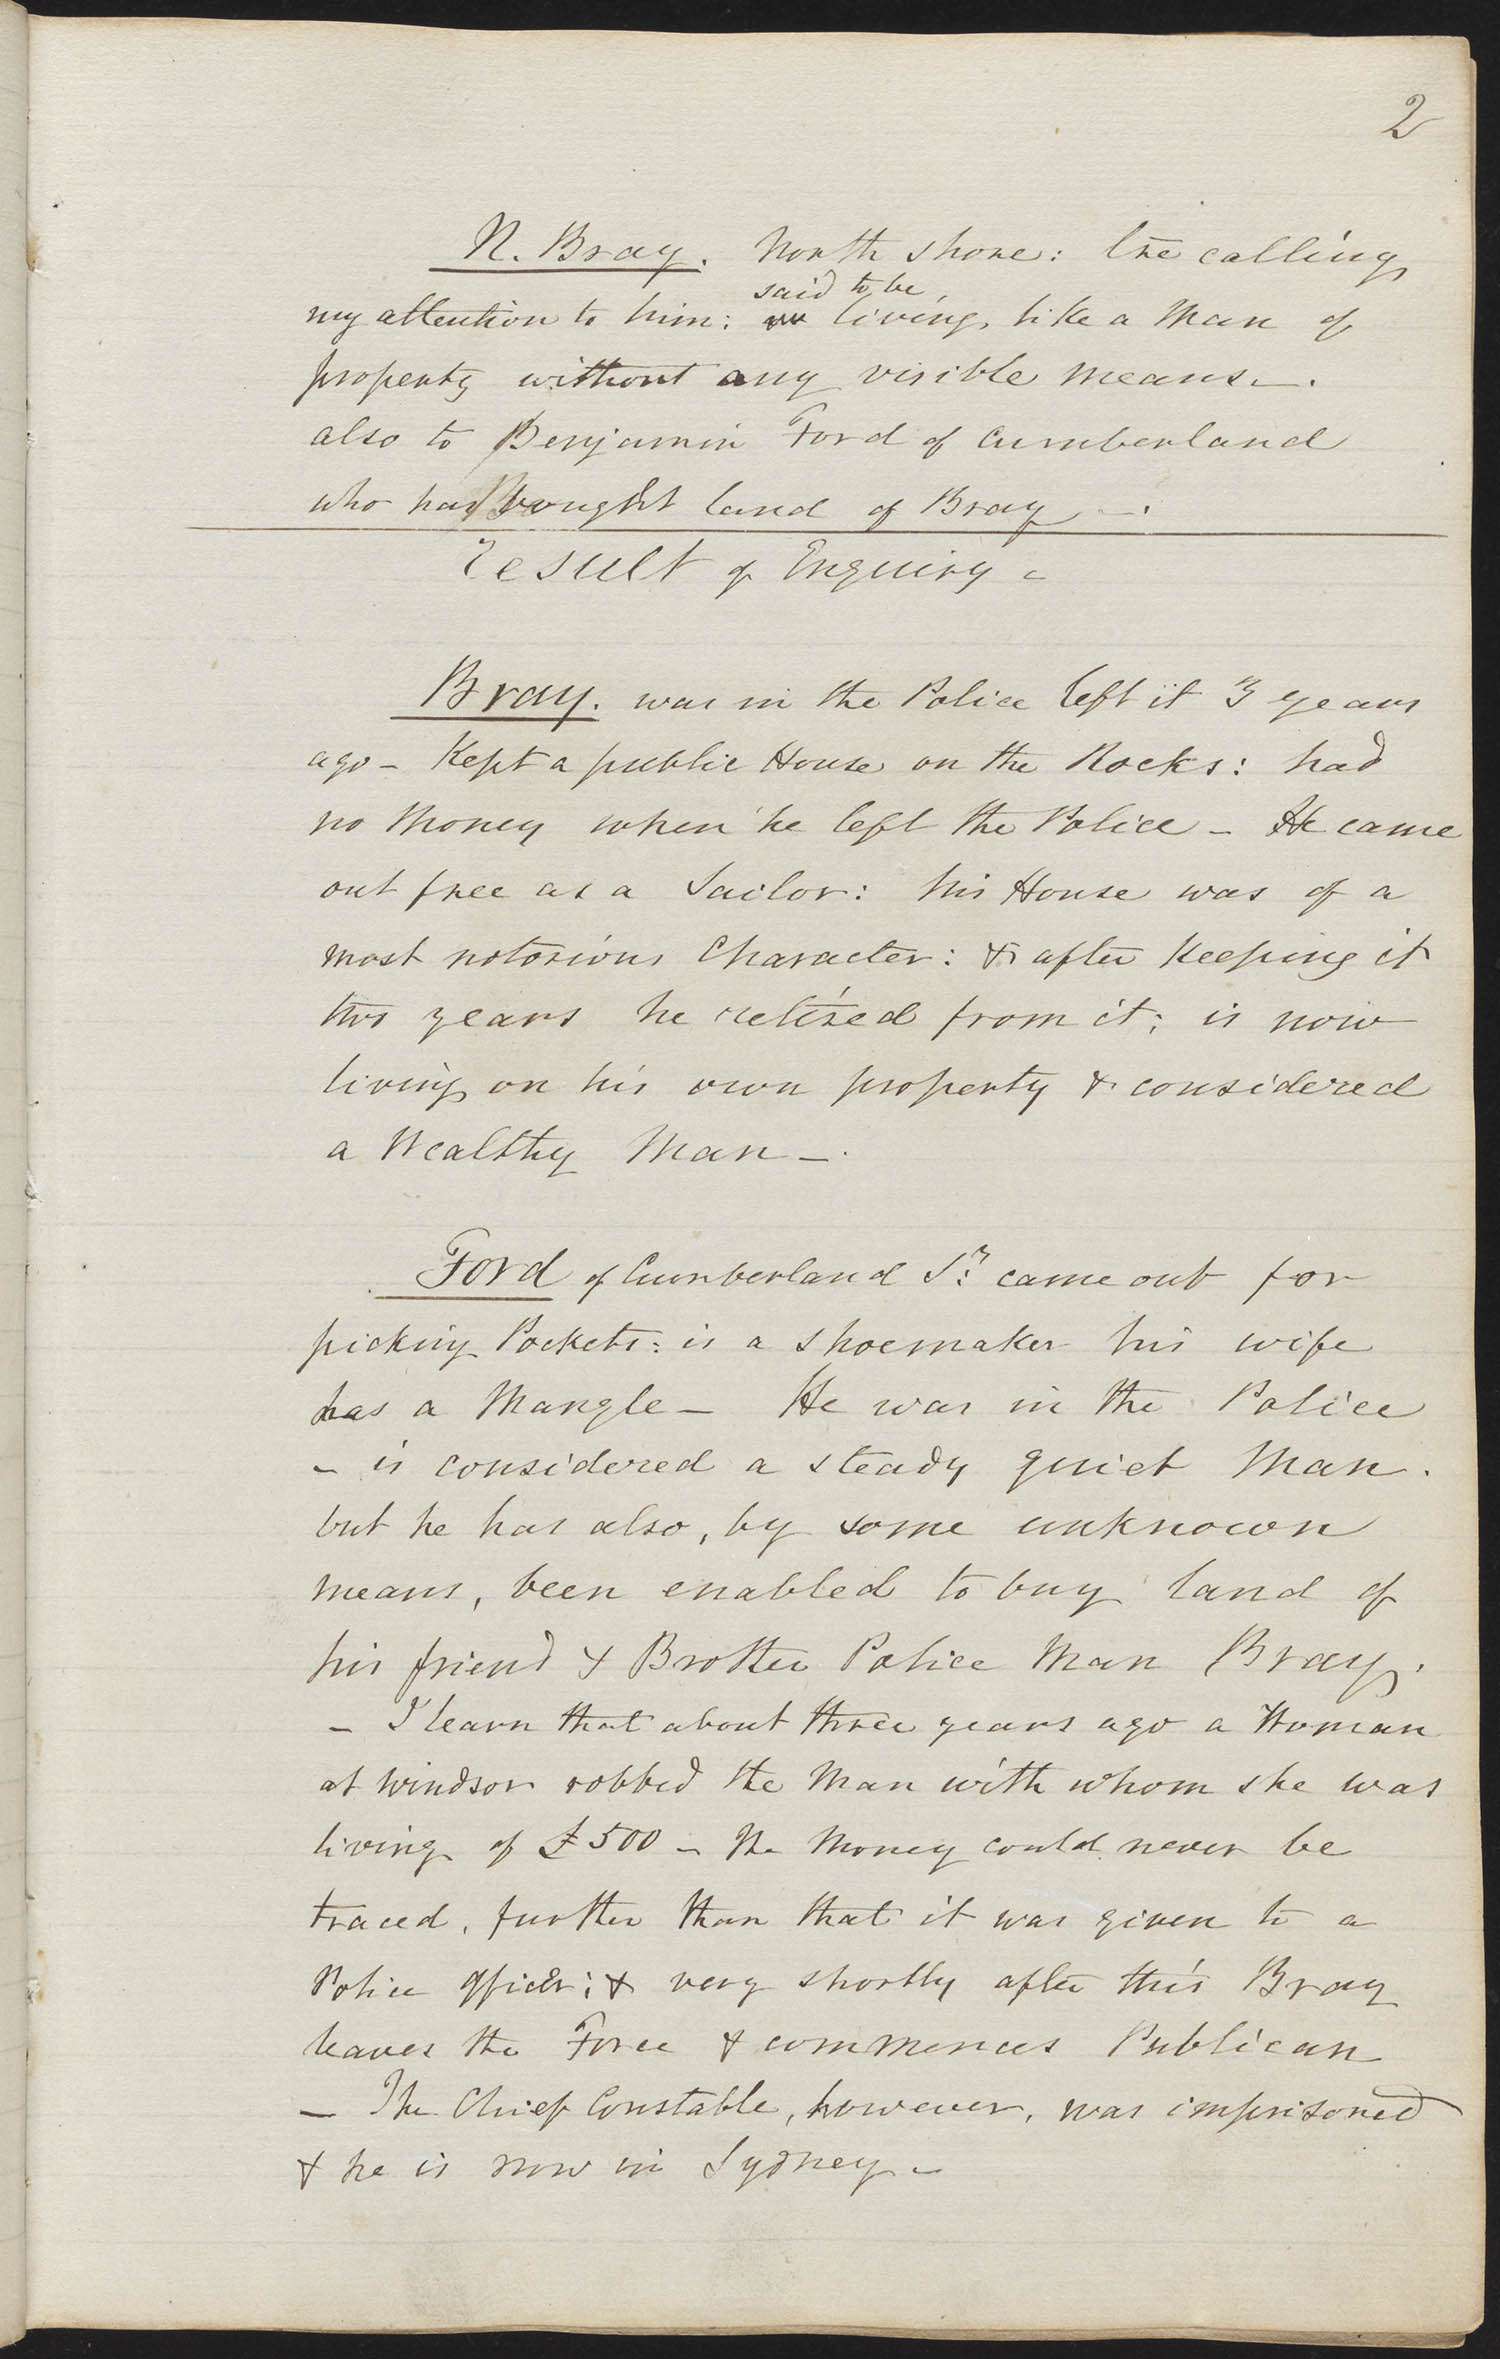 2
N. Bray. North Shore: calling
said to be
my attention to him: living like a Man of
property without any visible Means —.
also to Benjamin Ford of Cumberland
who has bought land of Bray —.
Result of Enquiry -
Bray. was in the Police left it 3 years
ago - Kept a public House on the Rocks: had
no Money when he left the Police - He came
out free as a Sailor: his House was of a
most notorious Character: & after Keeping it
two years he retired from it; is now
living on his own property & considered
a Wealthy Man —.
Ford of Cumberland St. came out for
picking Pockets: is a Shoemaker his wife
has a Mangle — He was in the Police
- is considered a steady quiet Man.
but he has also, by some unknown
means, been enabled to buy land of
his friend & Brother Police Man Bray.
- I learn that about three years ago a Woman
at Windsor robbed the Man with whom she was
living of £500 - The Money could never be
traced, further than that it was given to a
Police Officer; & very shortly after this Bray
leaves the Force & commences Publican
— The Chief Constable, however, was imprisoned
& he is now in Sydney -